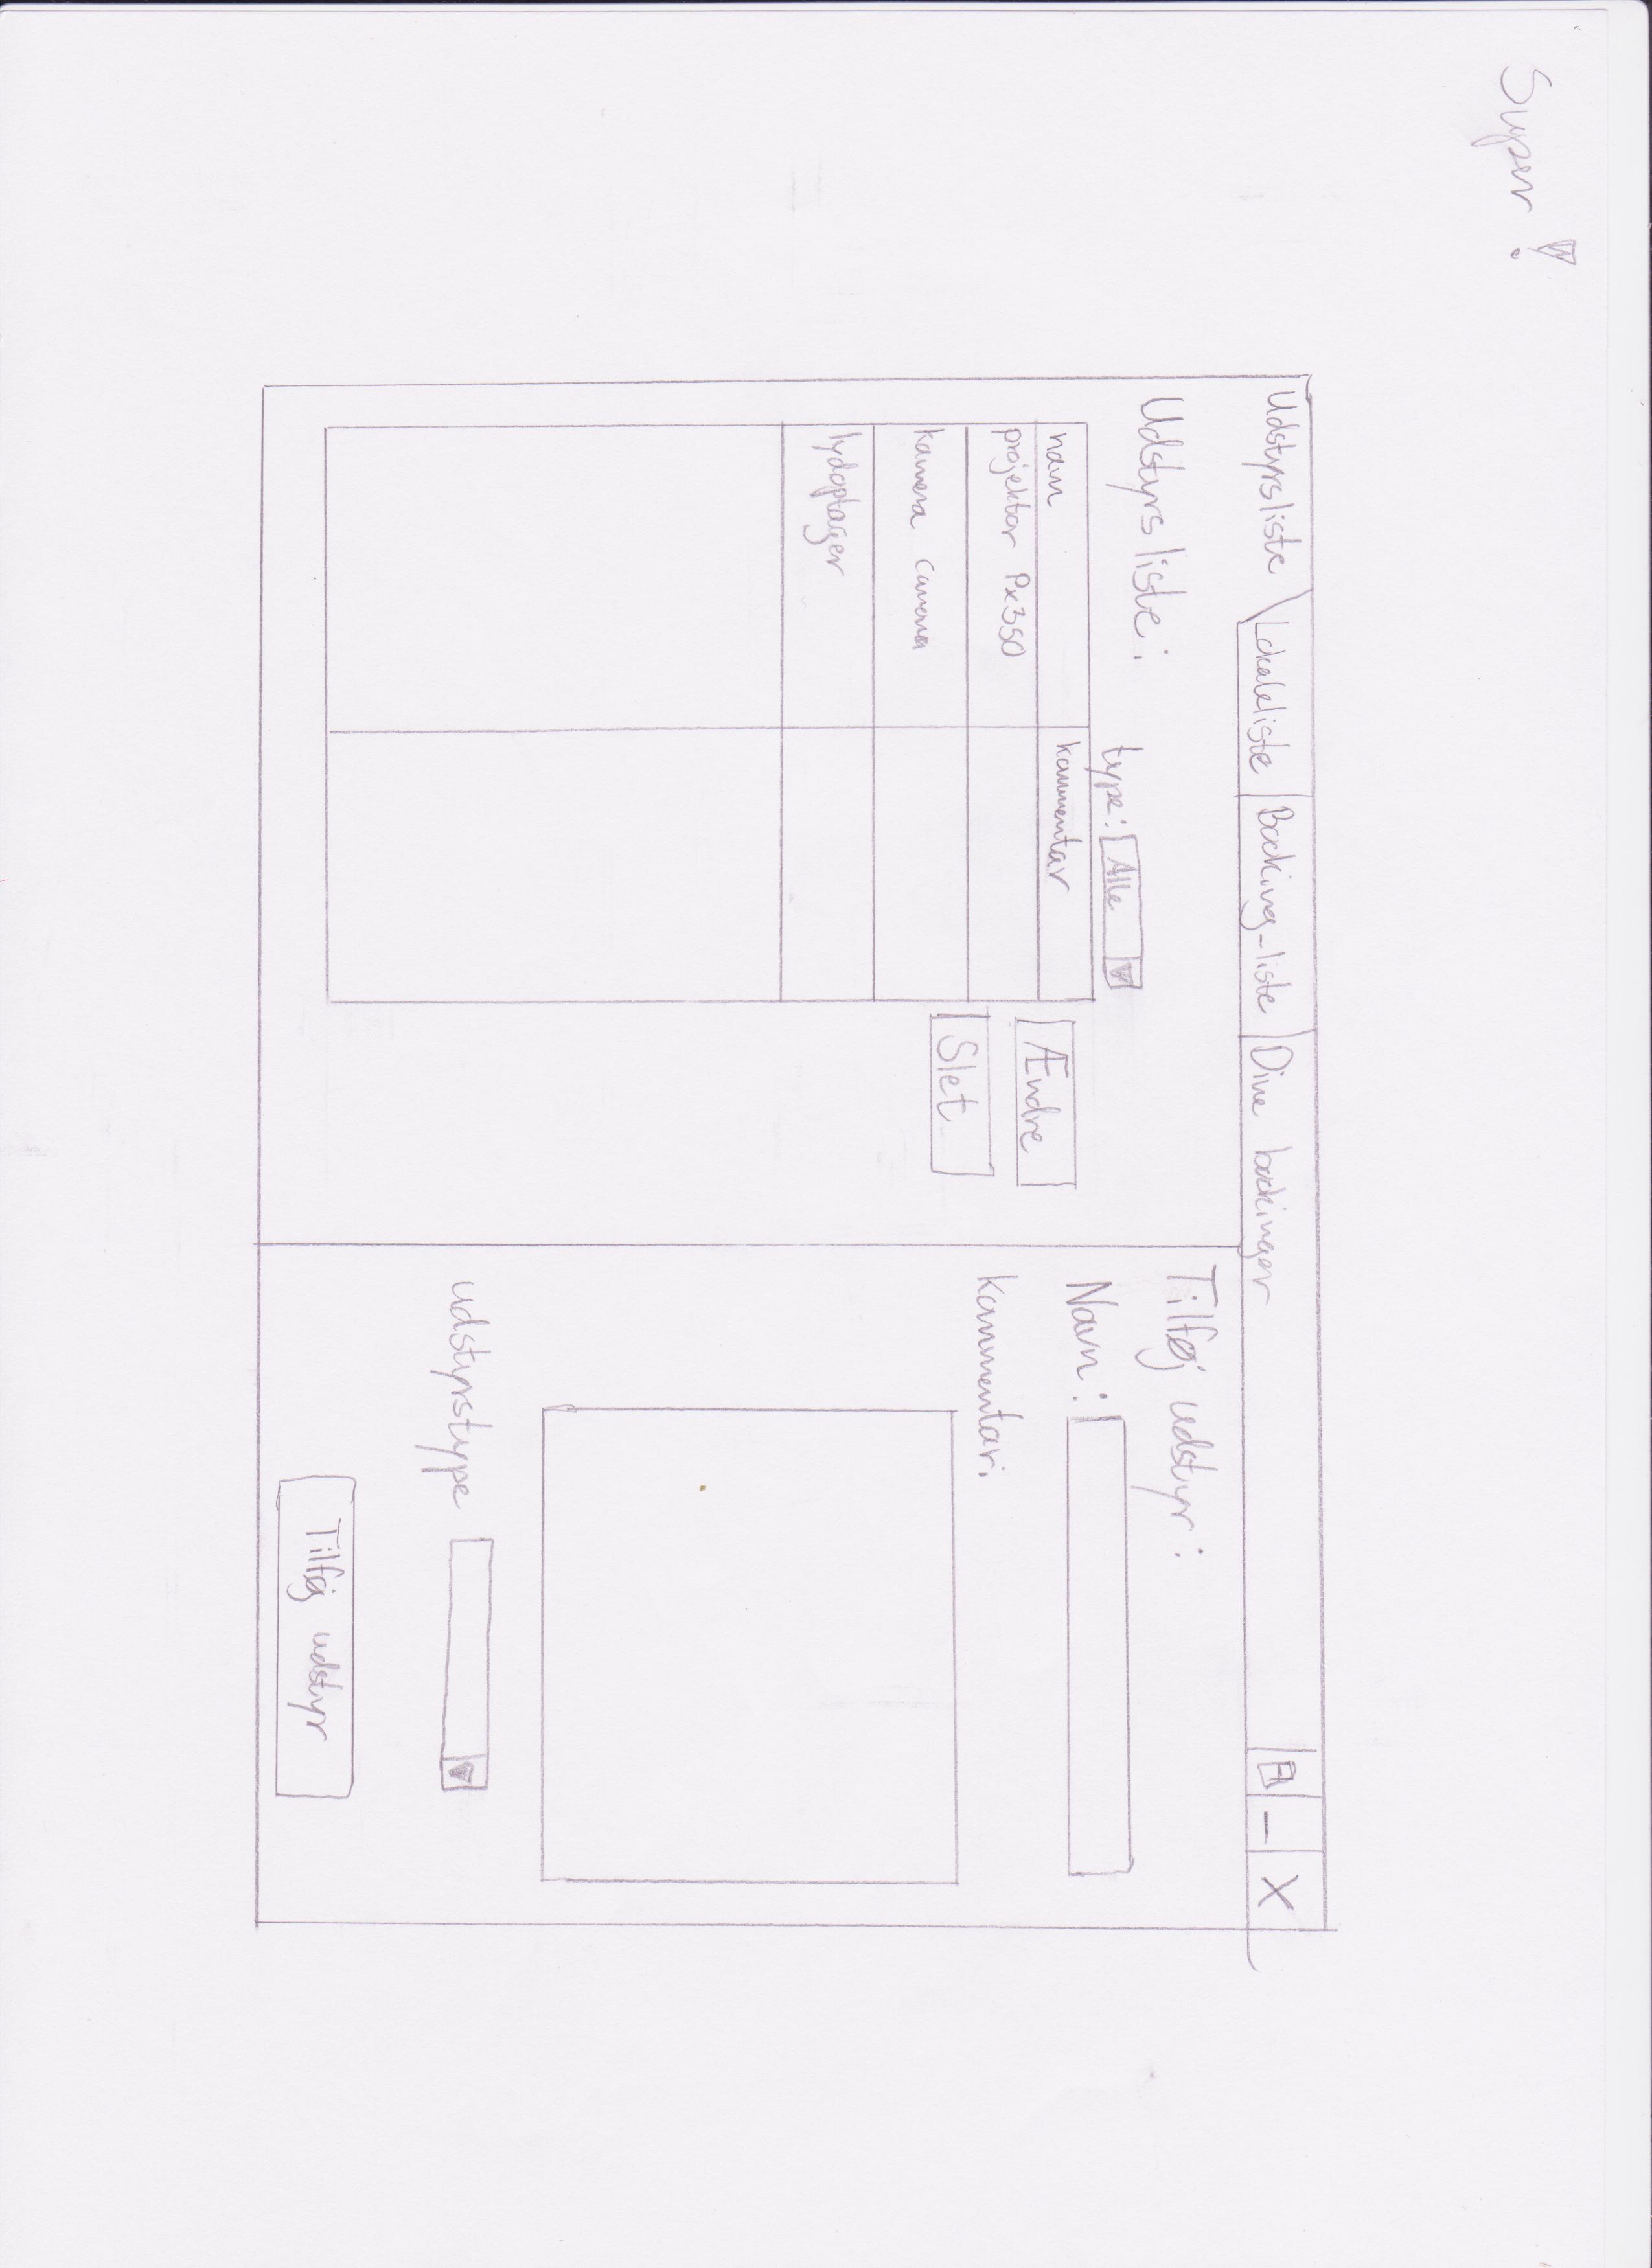 Super!
Udstyrsliste Lokaleliste Booking-liste Dine bookinger X
Udstyrsliste:
type: Alle
navn kommentar
projektor Px350
kamera camera
lydoptager
Ændre
Slet
Tilføj udstyr:
Navn:
kommentar:
udstyrstype
Tilføj udstyr